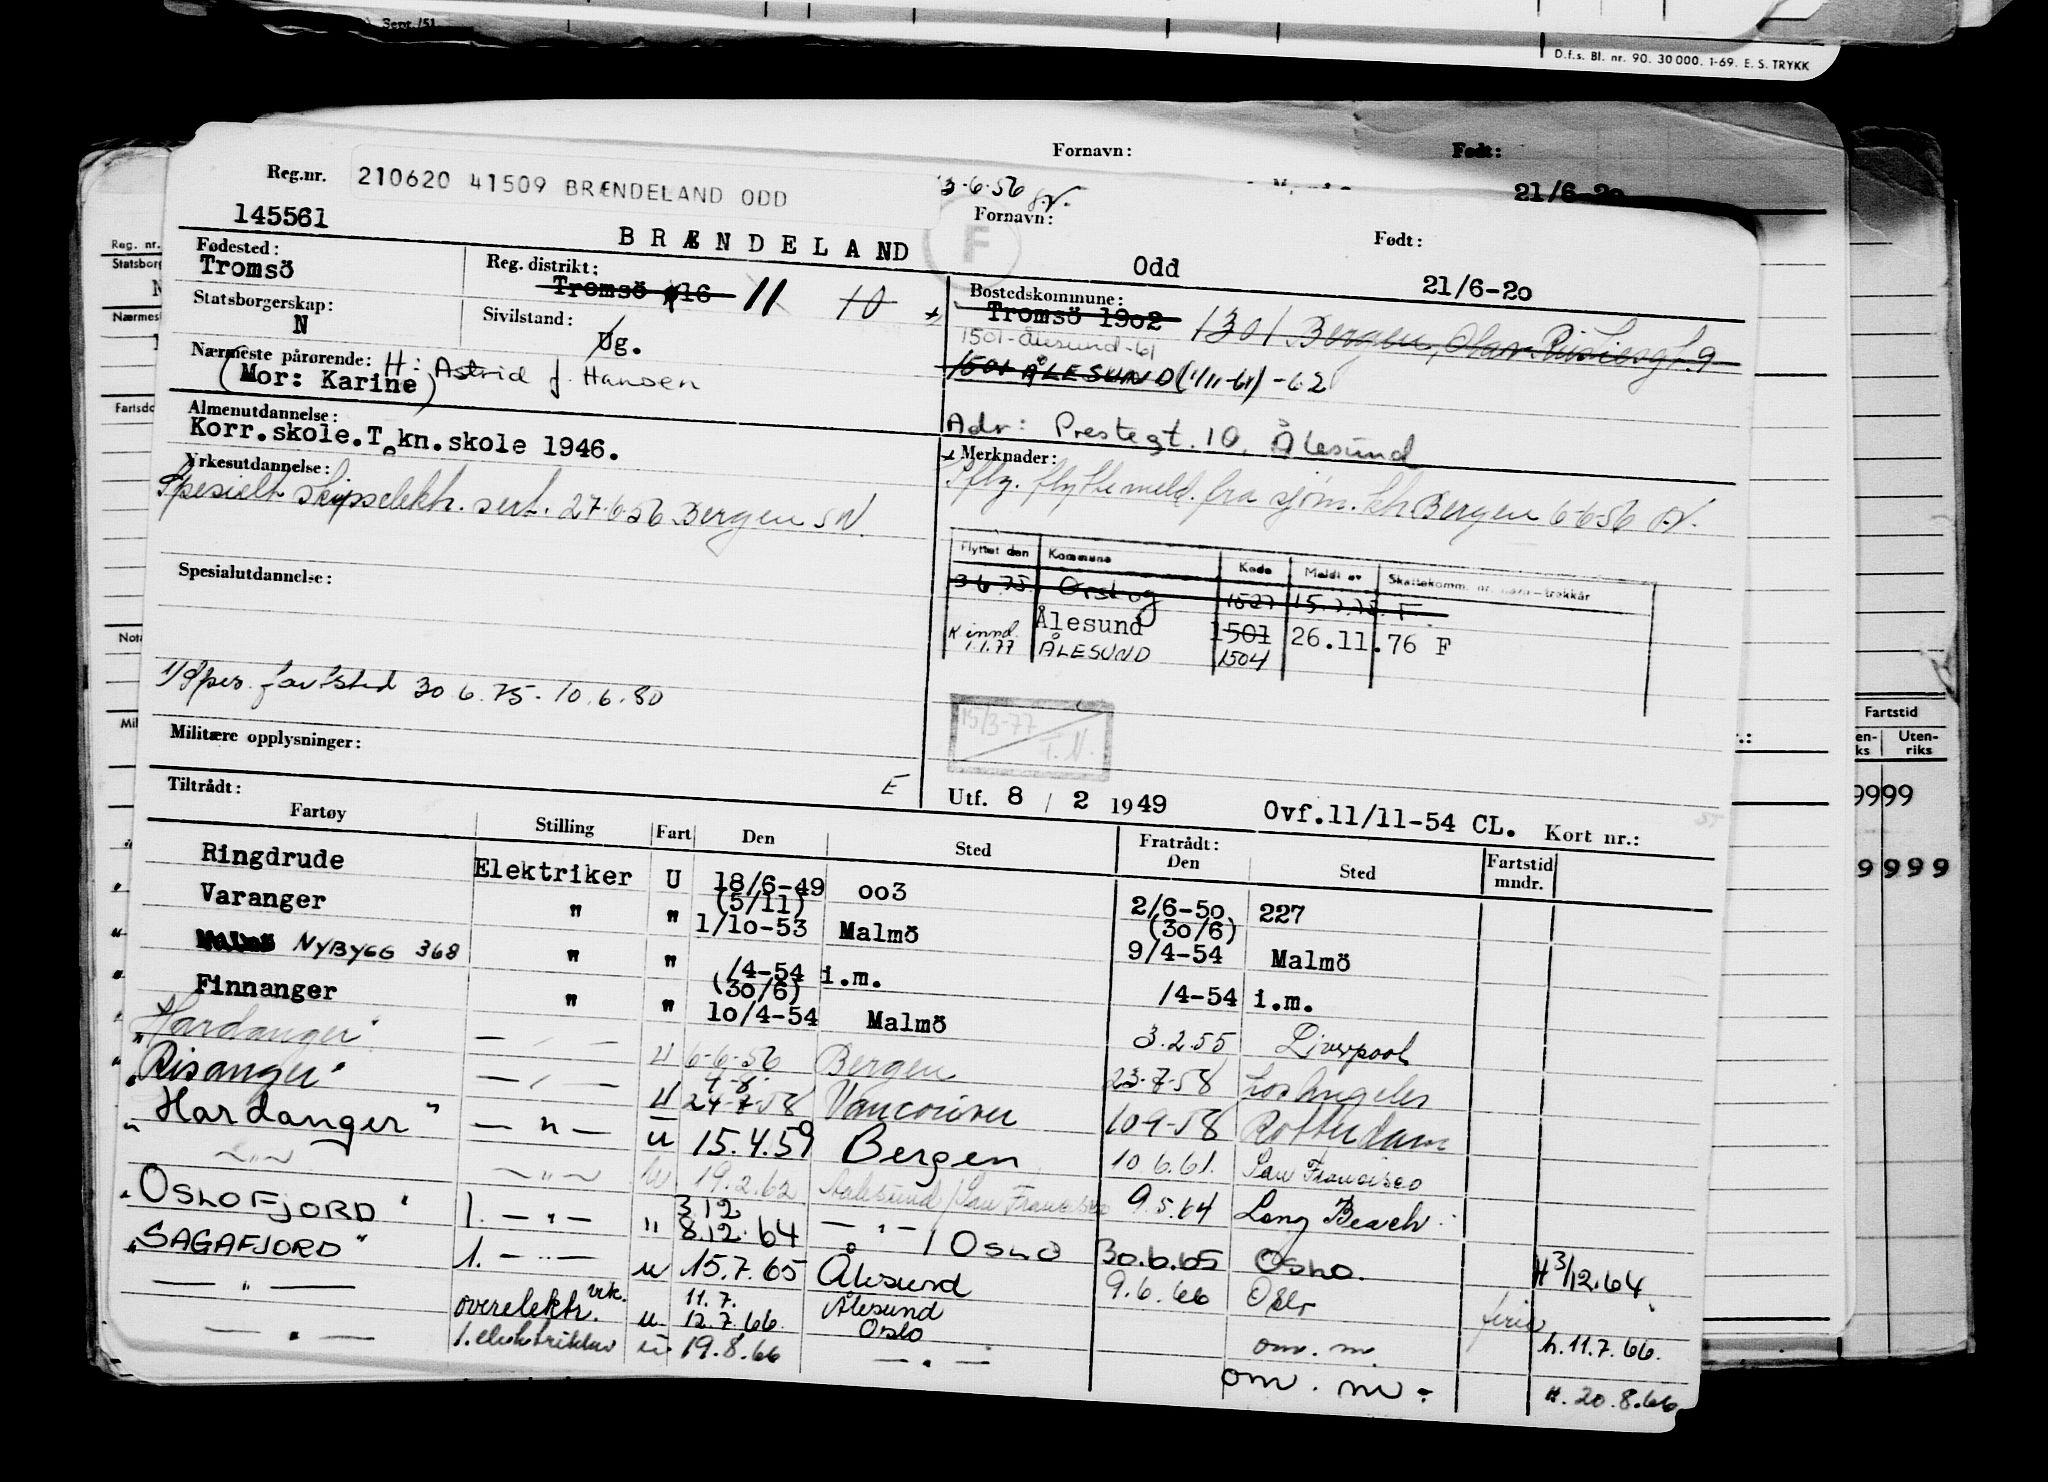 Sept./51
D.f.s. Bl. nr. 90. 30 000. 1-69. E. S. TRYKK
Fornavn: Født:
21/6-20
Reg.nr. 210620 41509 BRÆNDELAND ODD
3-6-56
145561 BRÆNDELAND
F
Fornavn: Odd
Født: 21/6-20
Fødested: Tromsö
Reg. distrikt: Tromsö 16 11 10
Bostedskommune: Tromsö 1902 1301 Bergen,
1501-Ålesund-61
1501 ÅLESUND (1/11-61) -62
Statsborgerskap: N
Sivilstand: Ug.
Nærmeste pårørende: H: Astrid f. Hansen
(Mor: Karine)
Adr: Prestegt. 10, Ålesund
Almenutdannelse:
Korr.skole.Tekn.skole 1946.
Yrkesutdannelse:
Spesielt skipselektr. sert. 27-6-56 Bergen
Merknader:
Iflg. flyttemeld. fra sjøm.ktr. Bergen 6-6-56
Flyttet den Kommune Kode Meldt av Skattekomm. nr. navn-trekkår
3 6.75. Ørskog 1527 15.7.75. F
Ålesund 1501 26.11.76 F
K. innd. 1.1.77 ÅLESUND 1504
Spesialutdannelse:
1) Spes. fartstid 30.6.75 - 10.6.80
15/3-77
T.N.
Militære opplysninger:
E
Utf. 8 / 2 1949 Ovf.11/11-54 CL. Kort nr.:
Tiltrådt: Fratrådt:
Fartøy Stilling Fart Den Sted Den Sted Fartstid mndr.
Ringdrude Elektriker U 18/6-49 oo3 2/6-50 227
Varanger " " (5/11) 1/10-53 Malmö (30/6) 9/4-54 Malmö
NYBYGG 368 " " /4-54 i.m. /4-54 i.m.
Finnanger " " (30/6) 10/4-54 Malmö 3.2.55 Liverpool
"Hardanger" — " — U 6-6-56 Bergen 23-7-58 Los Angeles
"Risanger" — " — U 24-7-58 Vancouver 10-9-58 Rotterdam
"Hardanger" — " — u 15.4.59 Bergen 10.6.61. San Francisco
— " — — " — u 19.2.62 Aalesund/San Francisco 9.5.64 Long Beach
"OSLOFJORD" 1. — " — " 3.12 8.12.64 — " — / Oslo 30.6.65 OSLO. H 3/12.64
"SAGAFJORD" 1. — " — u 15.7.65 Ålesund 9.6.66 Oslo ferie
— " — overelektr. vik. u 11.7. 12.7.66. Ålesund Oslo om. m. h. 11.7.66.
— " — 1. elektriker u 19.8.66 — " — om. m. H. 20.8.66
Reg. nr.
Statsborg
Nærmest
Fartsdo
Nota
Mil
Fartstid
Uten-
riks
9999
9999